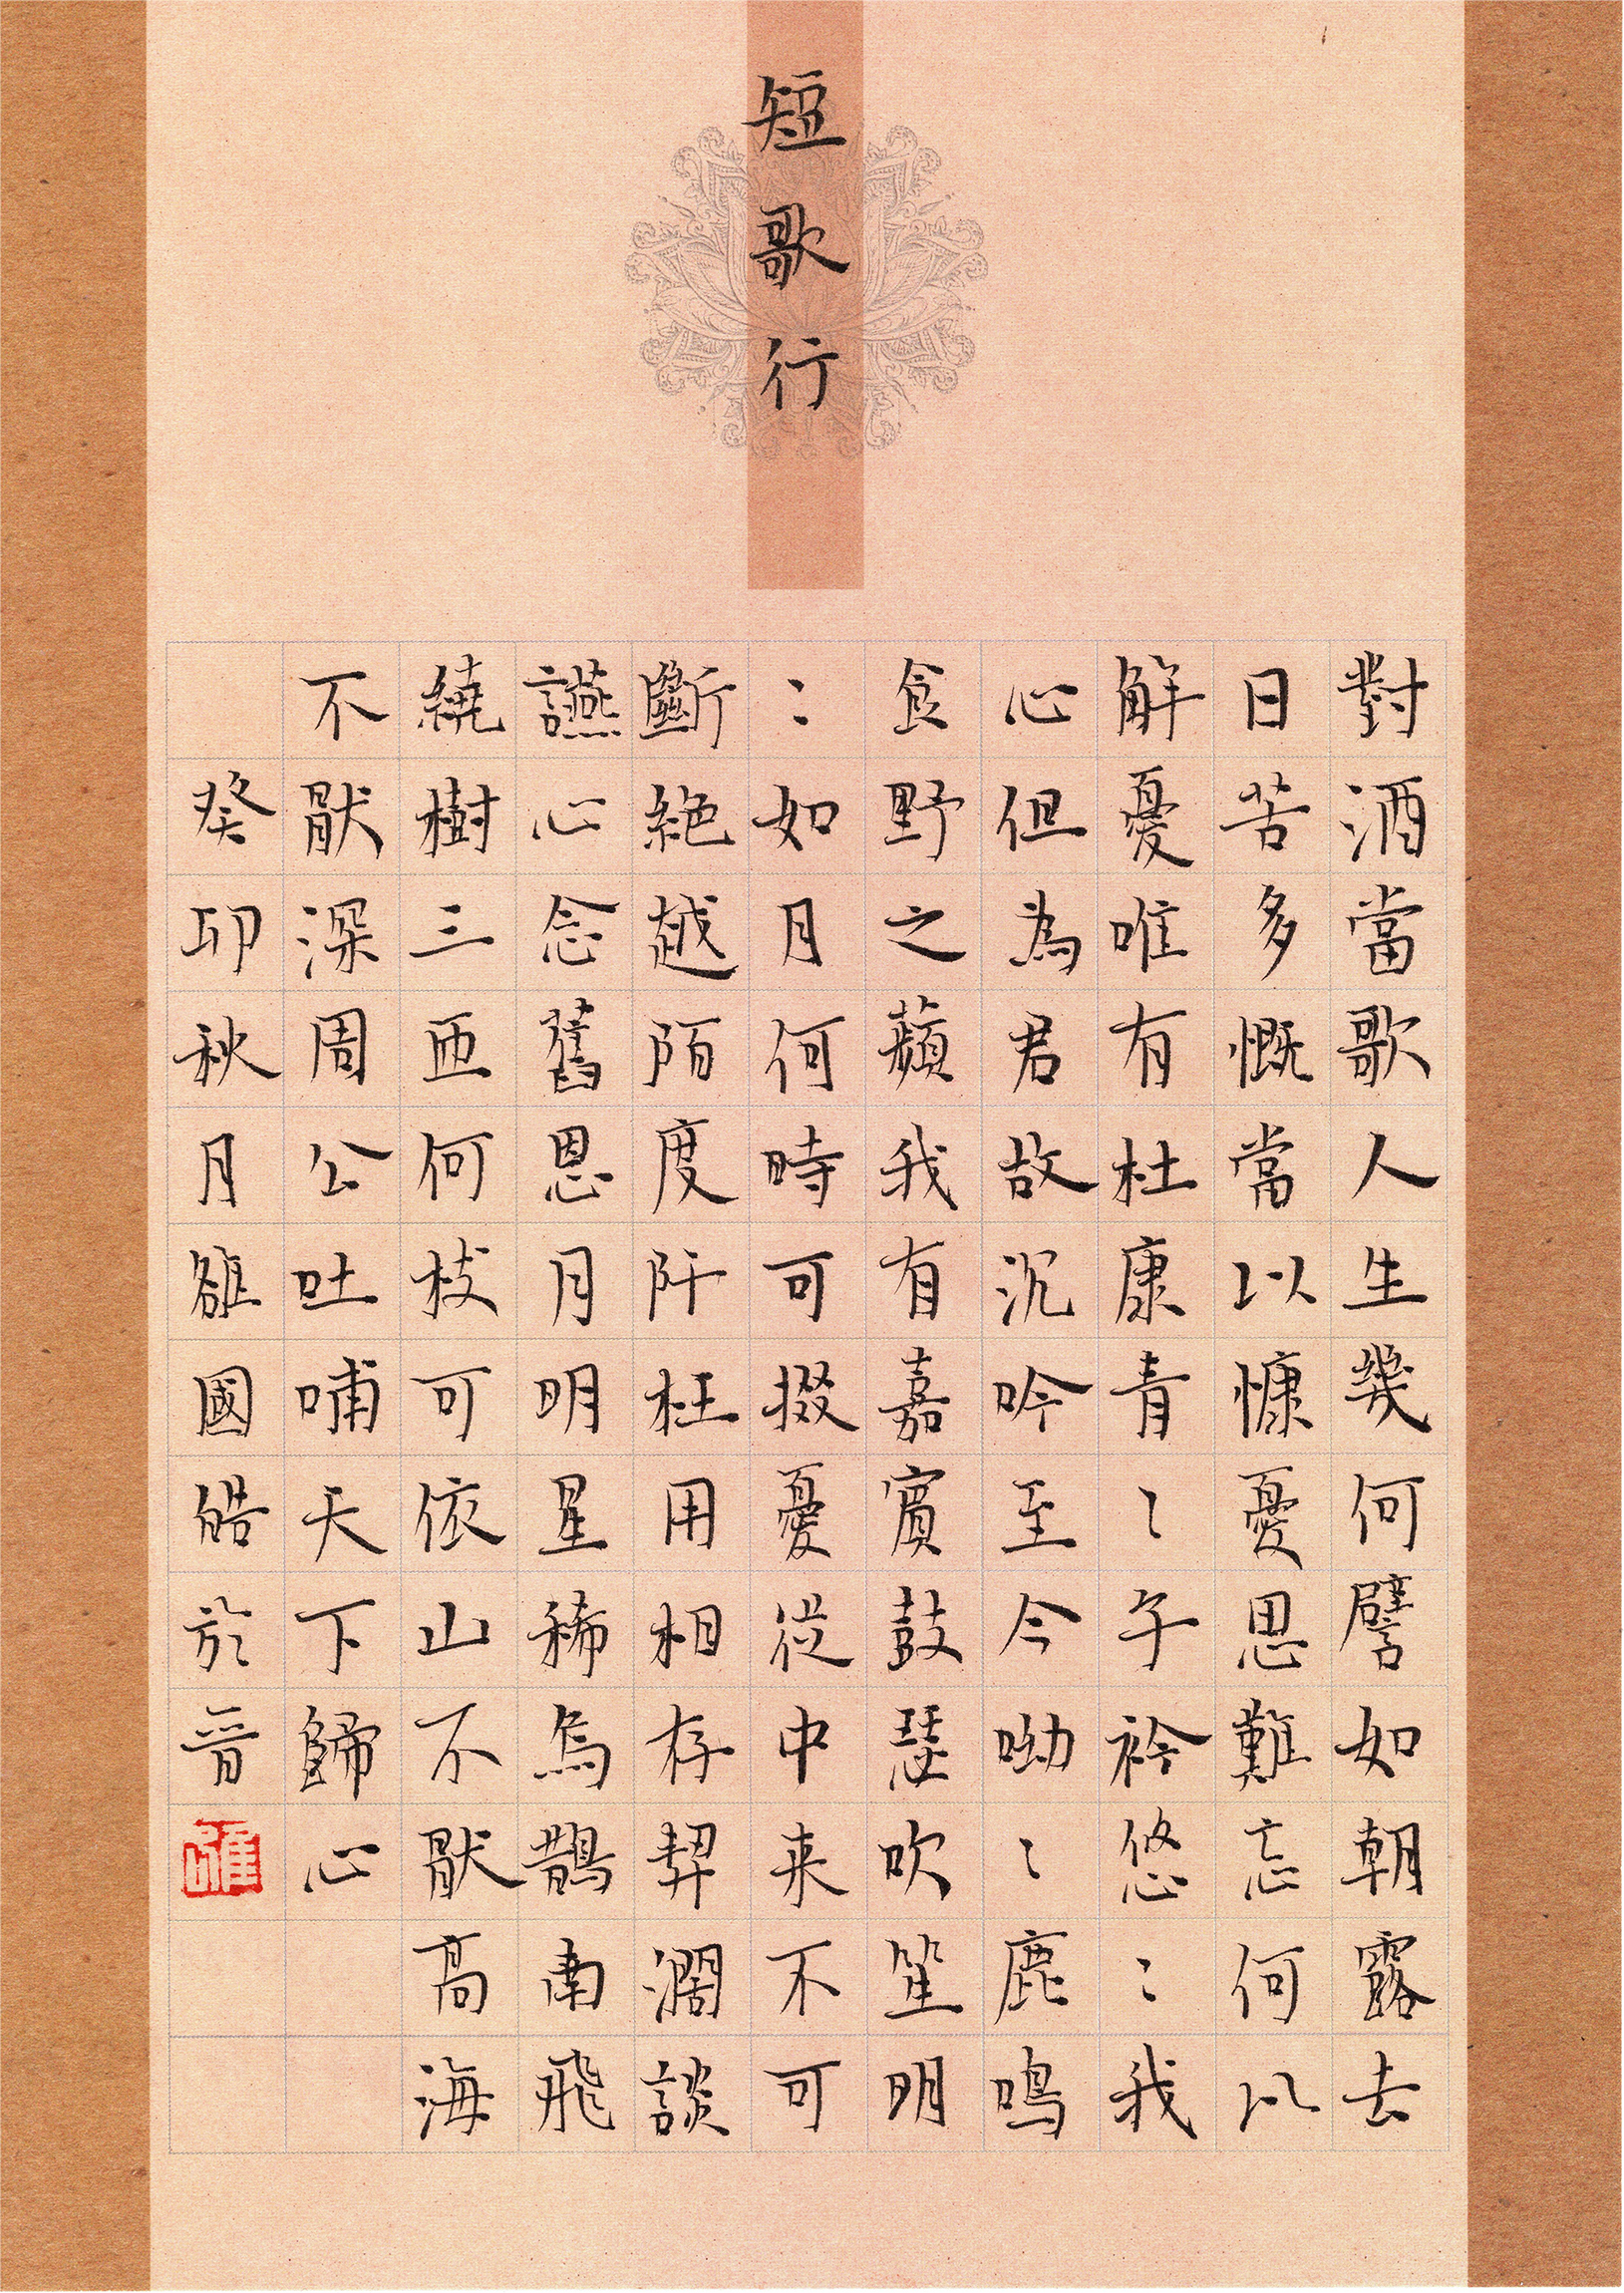 短歌行
對酒當歌人生幾何譬如朝露去
日苦多慨當以慷憂思難忘何以
解憂唯有杜康青〻子衿悠〻我
心但為君故沉吟至今呦〻鹿鳴
食野之蘋我有嘉賓鼓瑟吹笙明
〻如月何時可掇憂從中来不可
斷絕越陌度阡枉用相存契闊談
讌心念舊恩月明星稀烏鵲南飛
繞樹三匝何枝可依山不厭高海
不厭深周公吐哺天下歸心
癸卯秋月雒國皓於晉